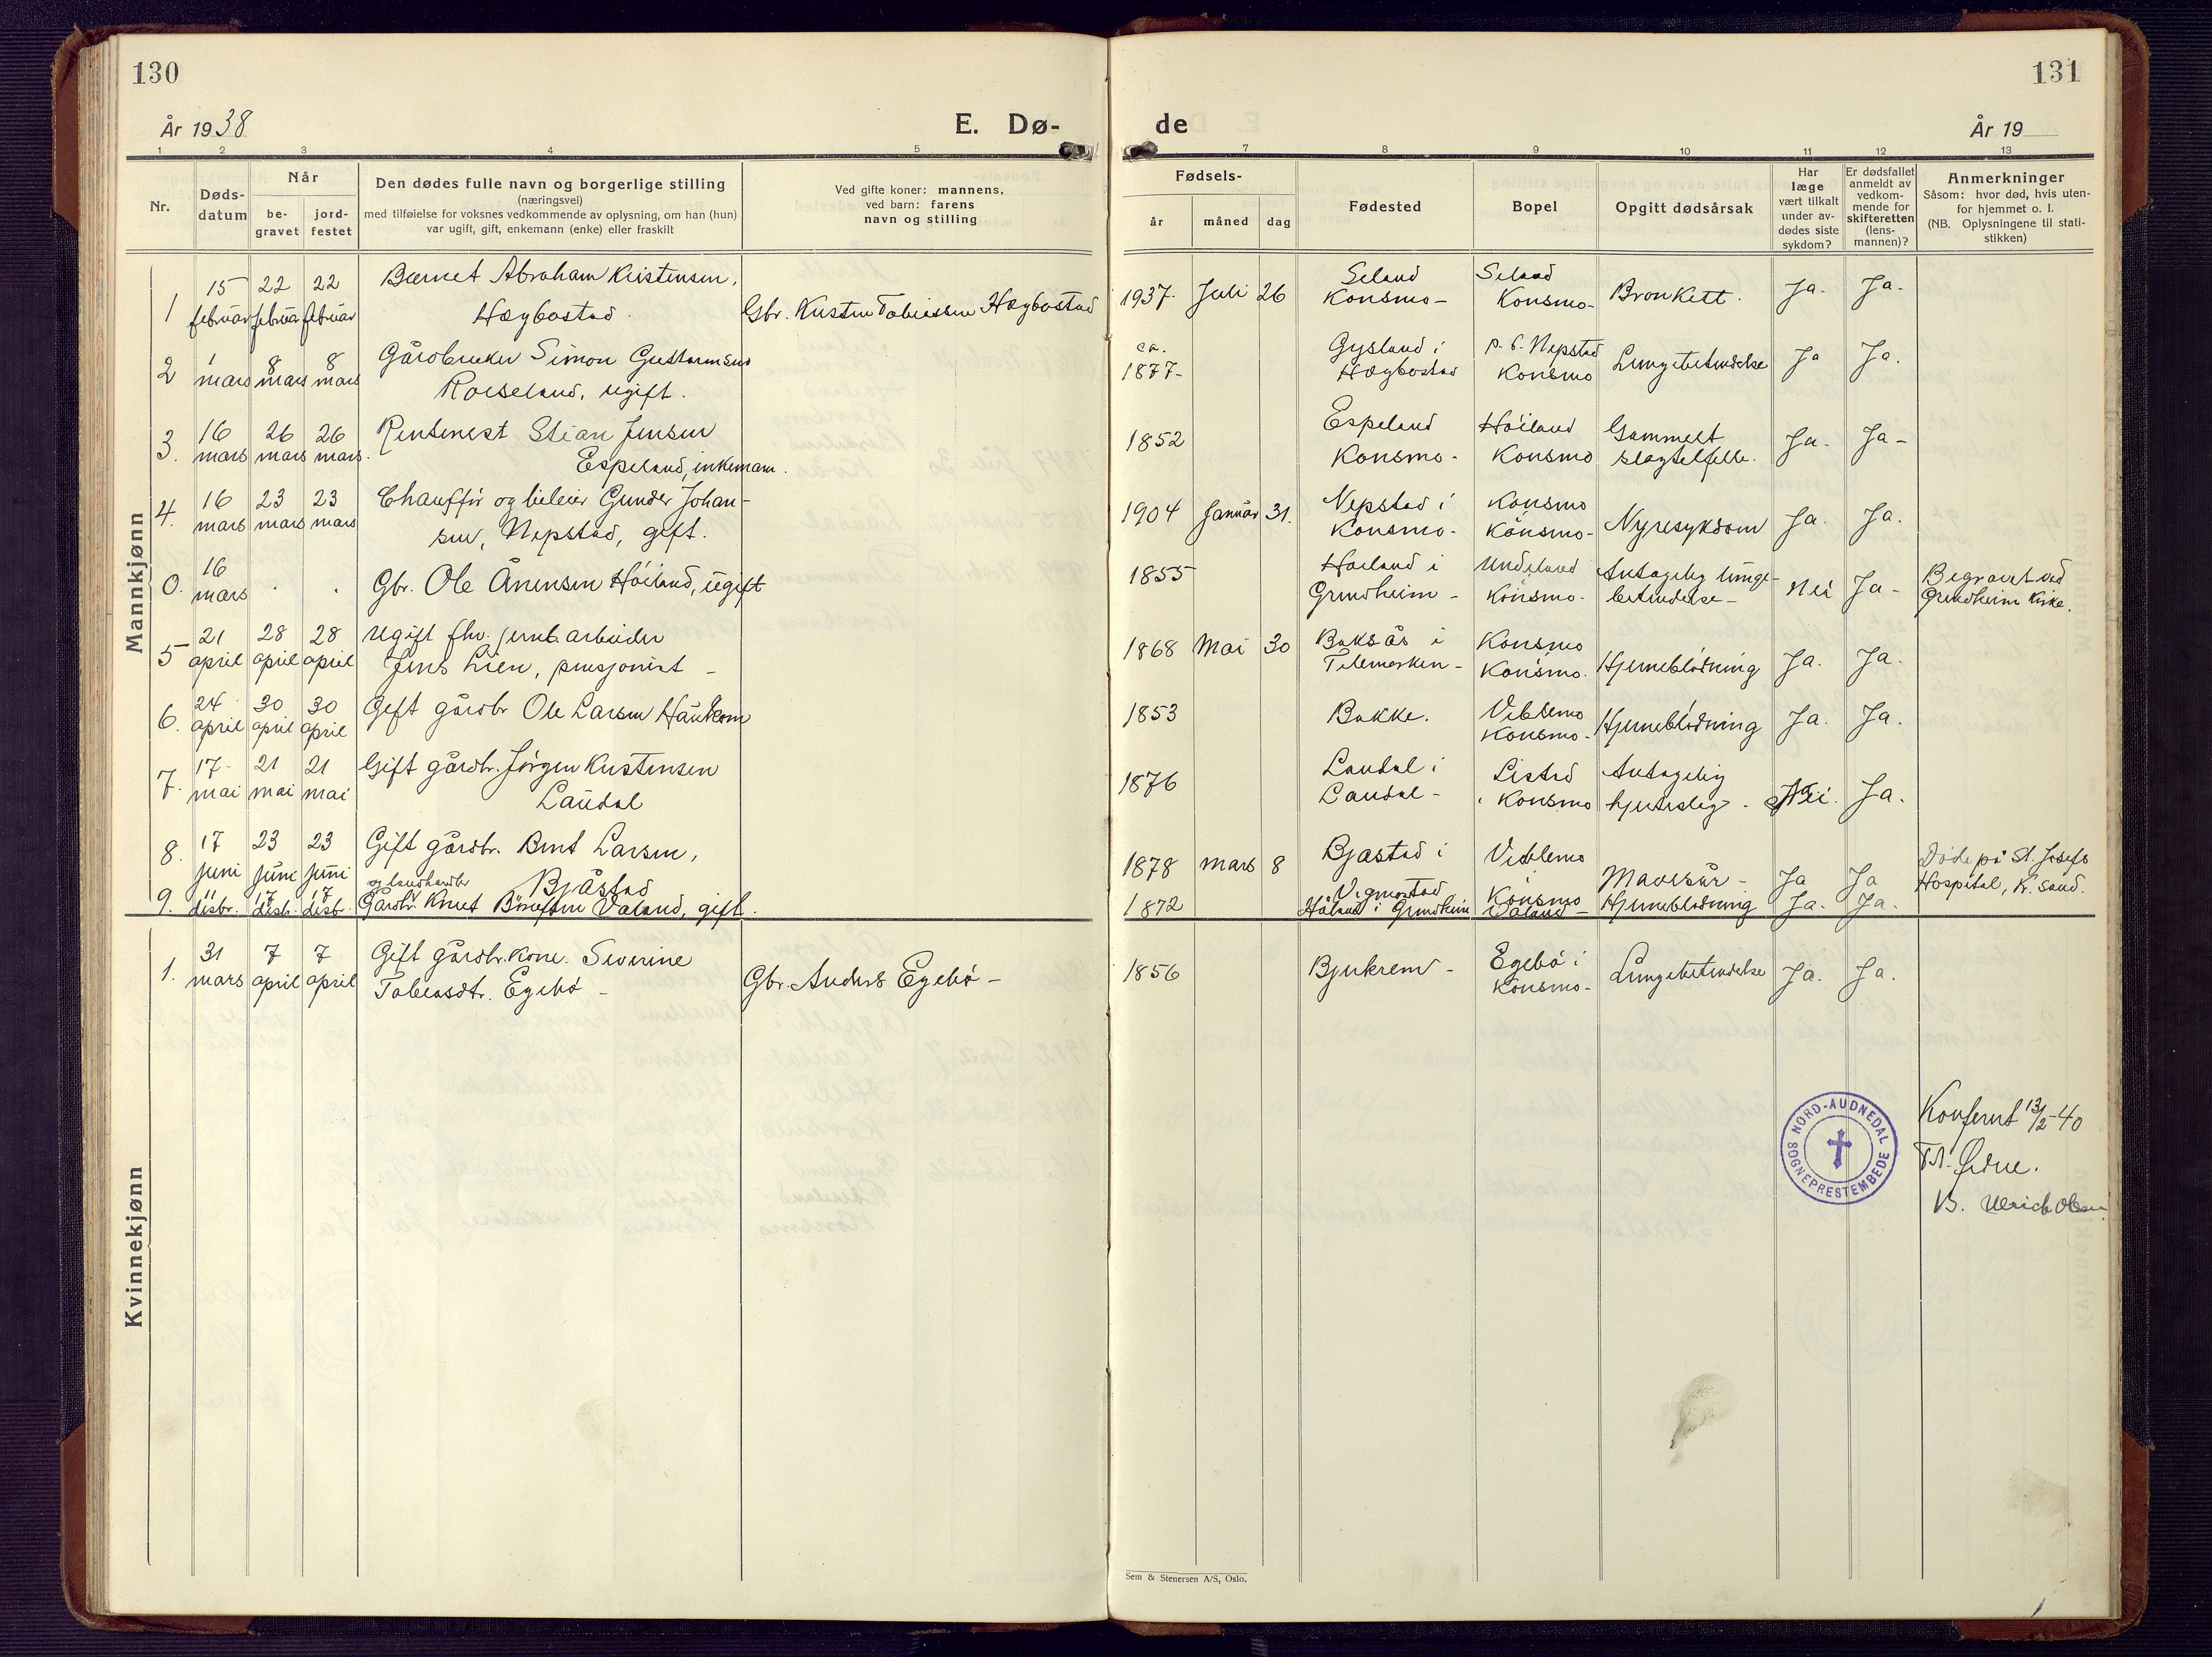 130
År 1938
E. Dø-
1 2 3 4 5
Nr.
Døds-
datum
Når
be-
gravet
jord-
festet
Den dødes fulle navn og borgerlige stilling
(næringsvei)
med tilføielse for voksnes vedkommende av oplysning, om han (hun)
var ugift, gift, enkemann (enke) eller fraskilt
Ved gifte koner: mannens,
ved barn: farens
navn og stilling
Mannkjønn
15 22 22 Barnet Abraham Kristensen,
1 februar februar februar Hægbostad. Gbr. Kristen Tobiassen Hægbostad
1 8 8 Gårdbruker Simon
2 mars mars mars Roiseland, ugift.
16 26 26 Rentenist Stian Jensen
3. mars mars mars. Espeland, enkemann.
16 23 23 Chauffør og bileier Gunder Johan-
4. mars mars mars sen, Nepstad, gift.
16
0. mars . . Gbr. Ole Ånensen Høiland, ugift
21 28 28 Ugift fhv. jernb.arbeider
5 april april april Jens Lien, pensjonist -
24 30 30 Gift gårdbr Ole Larsen Haukom
6. april april april
17 21 21 Gift gårdbr. Jørgen Kristensen
7. mai mai mai Laudal
17 23 23 Gift gårdbr. Bent Larsen,
8. juni juni juni Bjåstad
og landhandler
11 17 17
9. desbr. desb. desb. Gårdbr. Knut Våland, gift.
Kvinnekjønn
31 7 7 Gift gårdbr.kone. Severine
1. mars april april Tobiasdtr. Egebø - Gbr. Anders Egebø -
131
de
År 19
7 8 9 10 11 12 13
Fødsels-
år måned dag
Fødested
Bopel
Opgitt dødsårsak
Har
læge
vært tilkalt
under av-
dødes siste
sykdom?
Er dødsfallet
anmeldt av
vedkom-
mende for
skifteretten
(lens-
mannen)?
Anmerkninger
Såsom: hvor død, hvis uten-
for hjemmet o. l.
(NB. Oplysningene til stati-
stikken)
Seland Seland
1937. Juli 26 Konsmo- Konsmo- Bronkett. Ja. Ja.
ca. Gysland i p. t. Nepstad
1877- Hægbostad Konsmo Lungebetendelse Ja Ja.
Espeland Høiland Gammelt
1852 Konsmo. Konsmo slagtilfelle. Ja. Ja-
Nepstad i Konsmo
1904 Januar 31. Konsmo. Konsmo- Nyresykdom Ja. Ja.
1855 Høiland i Undeland Antagelig lunge-
Grindheim - Konsmo. betendelse- Nei Ja- Begravet ved
Grindheim kirke.
1868 Mai 30 i Konsmo
Telemarken- Konsmo. Hjerneblødning Ja. Ja.
1853 Bakke. Viblemo
Konsmo- Hjerneblødning Ja. Ja.
Laudal i Listad Antagelig
1876 Laudal- Konsmo hjerteslag - Nei. Ja.
Bjåstad i Viblemo
1878 mars 8 Vigmostad Konsmo Mavesår - Ja Ja Døde på St. Josefs
Hospital, Kr. sand.
1872 Håland i Grindheim Våland - Hjerneblødning Ja. Ja.
1856 Bjerkreim - Egebø i
Konsmo- Lungebetendelse Ja. Ja.
NORD-AUDNEDAL
SOGNEPRESTEMBEDE
Konferert 13/2-40
Øidne.
B. Ulrich Olsen
Sem & Stenersen A/S, Oslo.